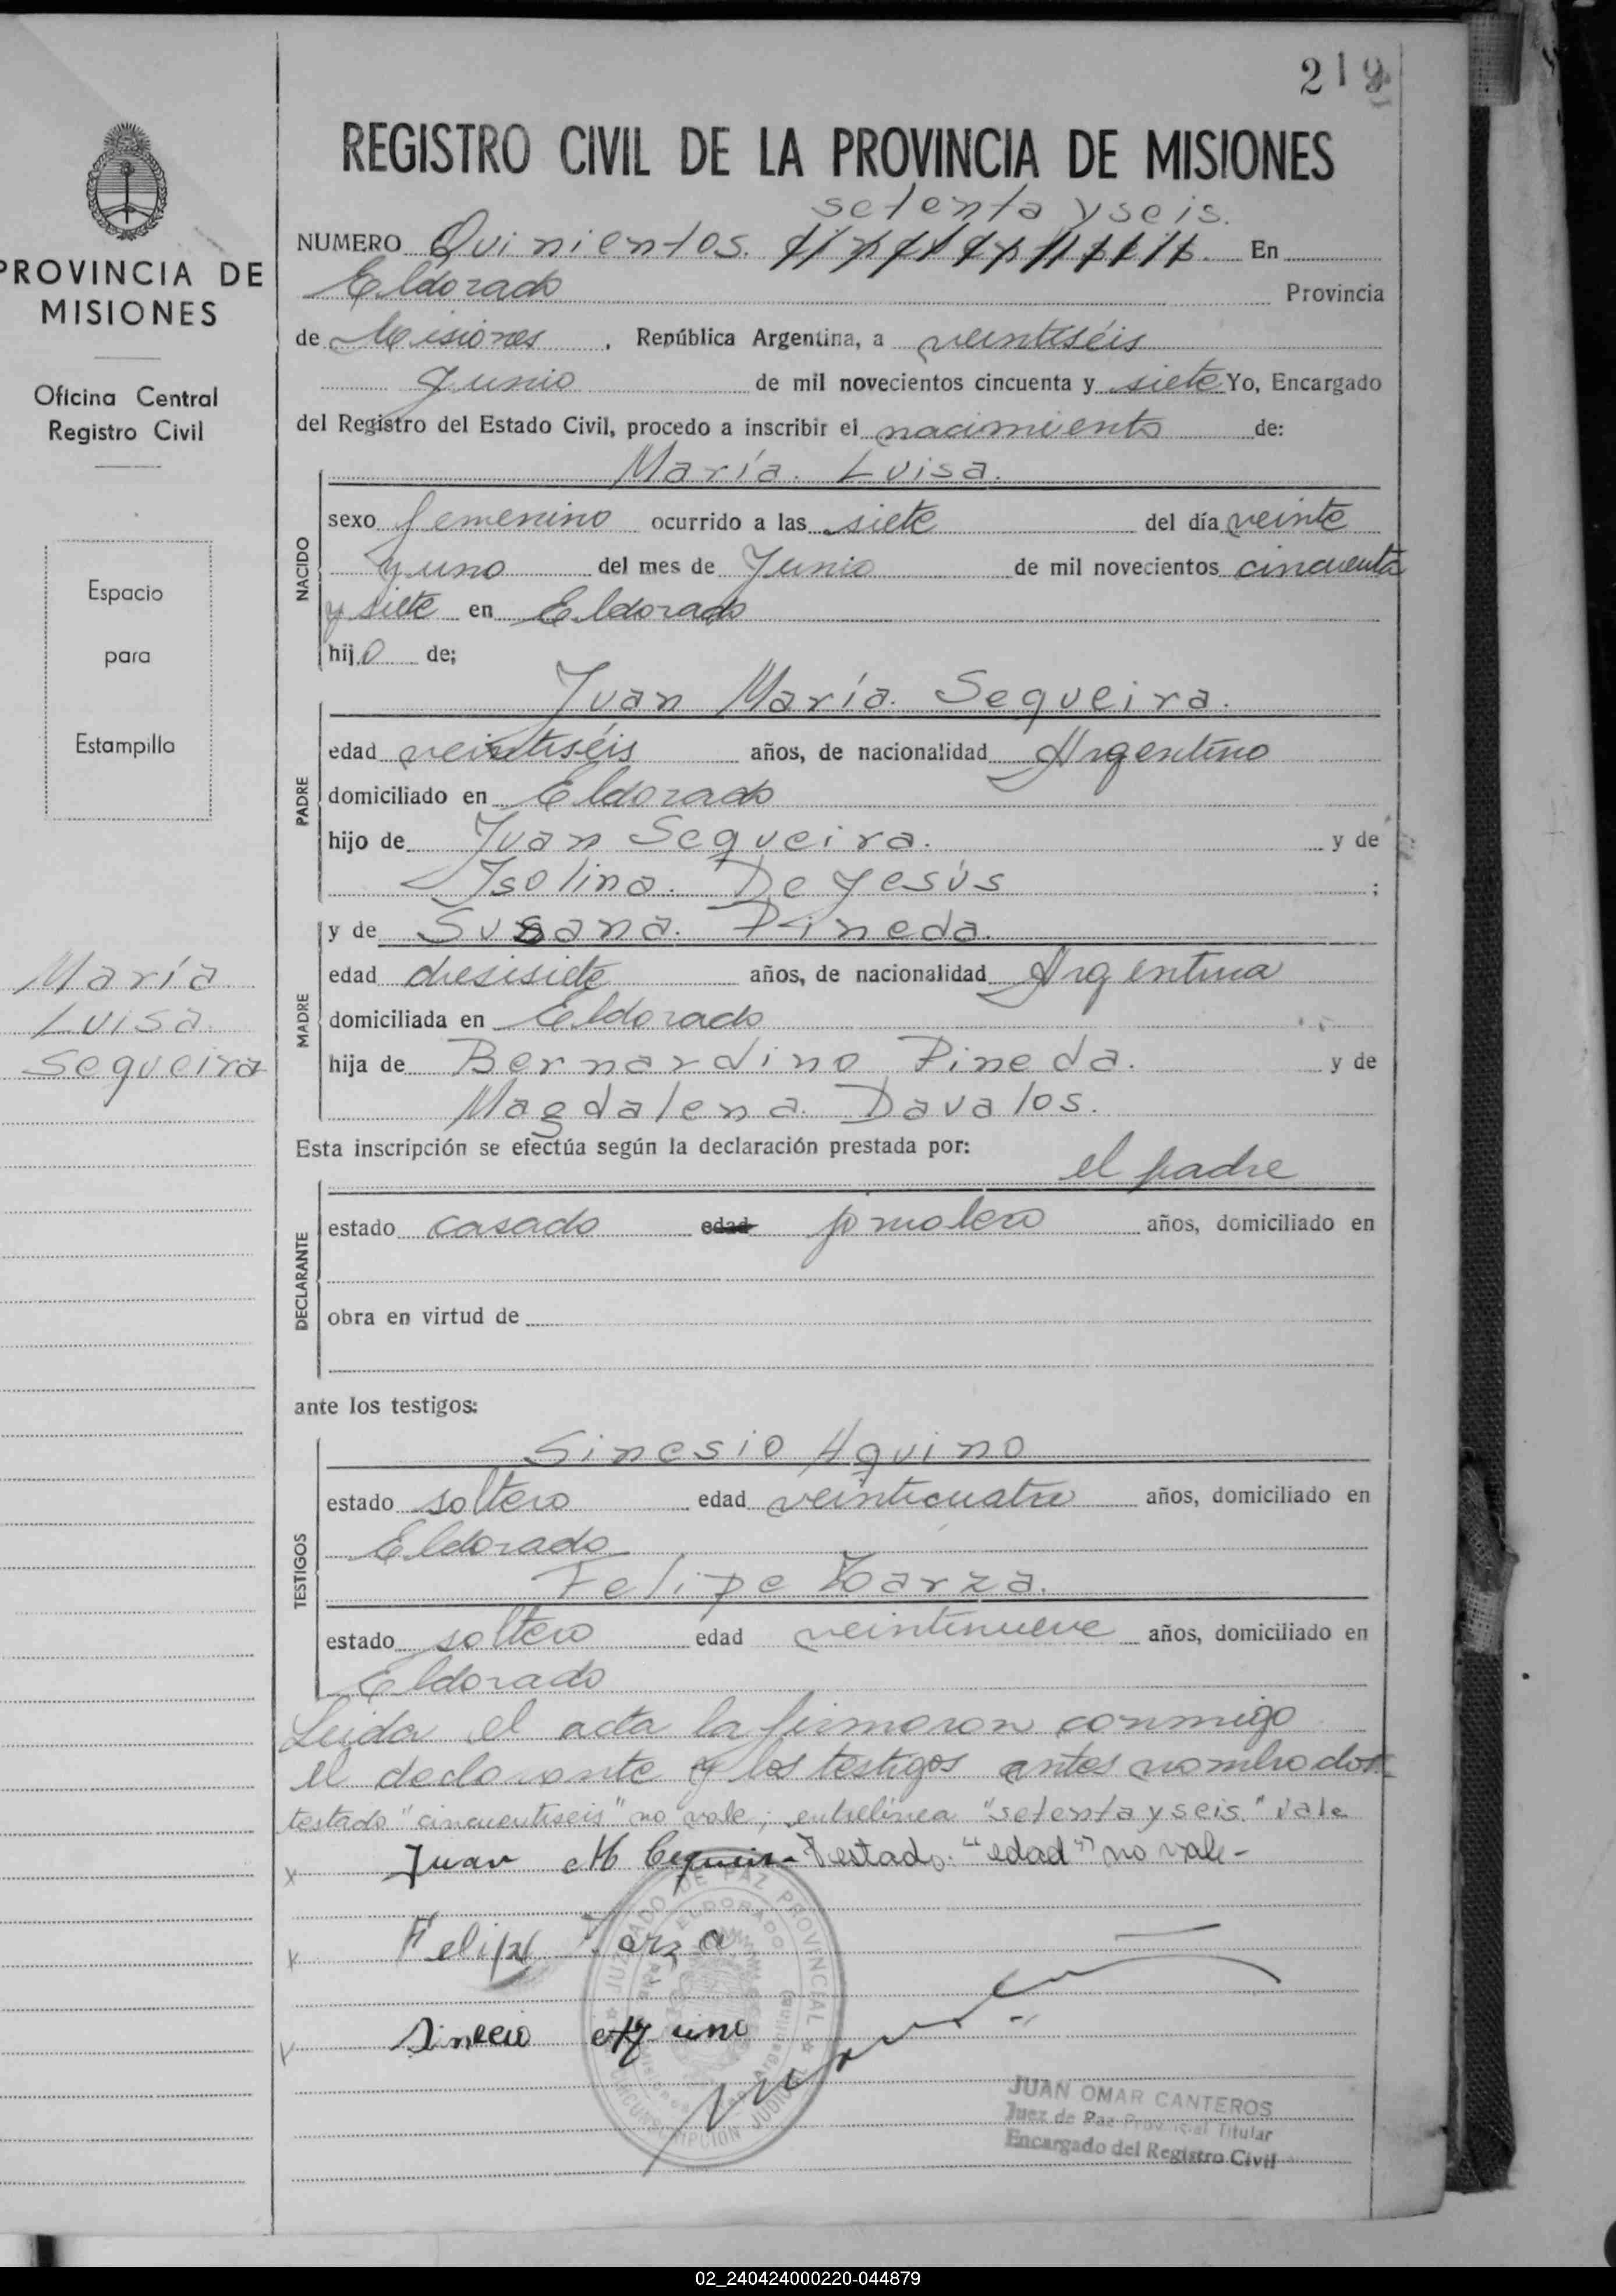 219
REGISTRO CIVIL DE LA PROVINCIA DE MISIONES
setenta y seis.
NUMERO Quinientos. En
Eldorado Provincia
de Misiones, República Argentina, a veintiséis
Junio de mil novecientos cincuenta y siete Yo, Encargado
del Registro del Estado Civil, procedo a inscribir el nacimiento de:
María. Luisa.
NACIDO
sexo femenino ocurrido a las siete del día veinte
y uno del mes de Junio de mil novecientos cincuenta
y siete en Eldorado
hijo de;
Juan María. Sequeira.
PADRE
edad veintiséis años, de nacionalidad Argentino
domiciliado en Eldorado
hijo de Juan Sequeira. y de
Isolina. De Jesús ;
y de Susana. Pineda.
MADRE
edad diesisiete años, de nacionalidad Argentina
domiciliada en Eldorado
hija de Bernardino Pineda. y de
Magdalena. Davalos.
Esta inscripción se efectúa según la declaración prestada por:
el padre
DECLARANTE
estado casado edad jornalero años, domiciliado en
obra en virtud de
ante los testigos:
Sinesio Aquino
TESTIGOS
estado soltero edad veinticuatro años, domiciliado en
Eldorado
Felipe Zarza.
estado soltero edad veintinueve años, domiciliado en
Eldorado
Leida el acta la firmaron conmigo
el declarante y los testigos antes nombrados.
testado "cincuentiseis" no vale; entrelínea "setenta y seis." vale
Juan M Cequeira Testado: "edad" no vale-
Felipe Zarza
Sinecio Aquino
JUZGADO DE PAZ PROVINCIAL
ELDORADO
CIRCUNSCRIPCION JUDICIAL
JUAN OMAR CANTEROS
Juez de Paz Provincial Titular
Encargado del Registro Civil
PROVINCIA DE
MISIONES
Oficina Central
Registro Civil
Espacio
para
Estampilla
María
Luisa
Sequeira
02_240424000220-044879